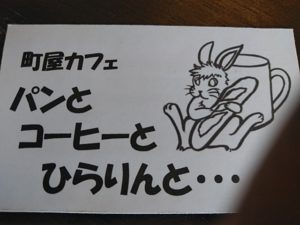 町屋カフェ
パンと
コーヒーと
ひらりんと・・・